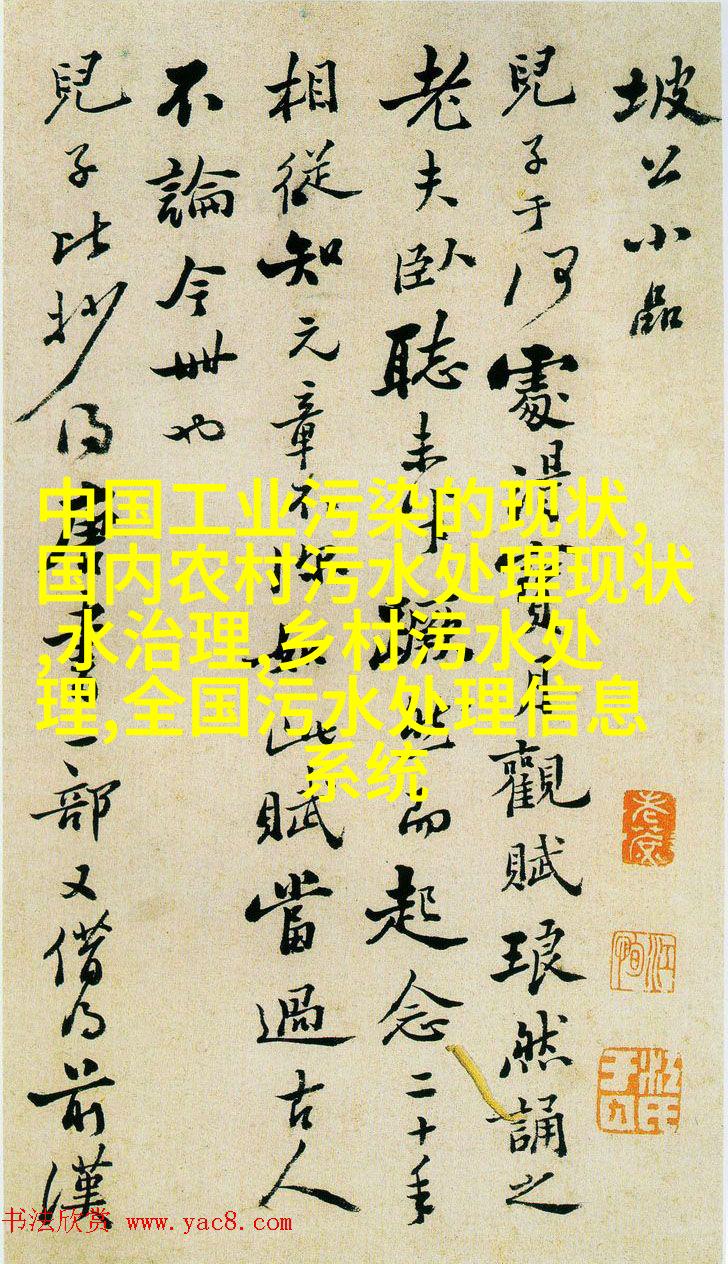 坡公小品
兒子于何處得寶月觀賦琅然誦之
老夫臥聽未半躍然而起念二十年
相從知元章不盡若此賦當過古人
不論今世也
兒子比抄得唐書一部又借得前漢
中国工业污染的现状,
国内农村污水处理现状
,水治理,乡村污水处
理,全国污水处理信息
系统
书法欣赏 www.yac8.com